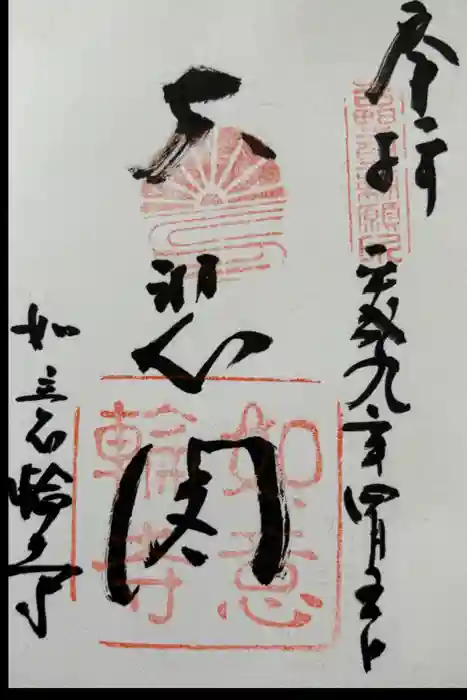 奉拝
平成九年四月五日
大悲閣
如意輪寺
如意輪寺